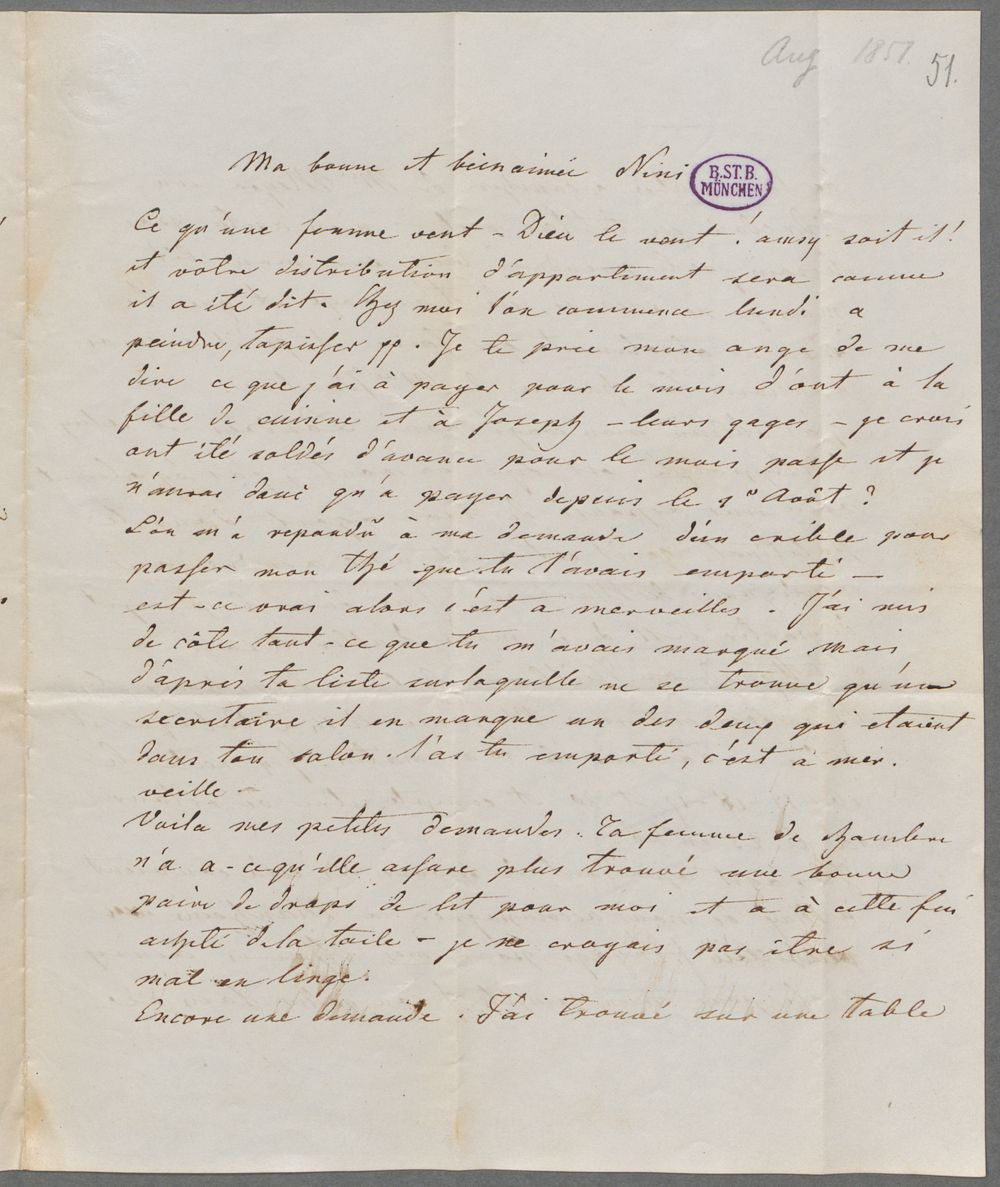 Aug 1851.
51.
Ma bonne et bienaimée Nini
B.ST.B.
MÜNCHEN
Ce qu'une femme veut – Dieu le veut! ainsy soit il!
et vôtre distribution d'appartement sera comme
il a été dit. Chez moi l'on commence lundi a
peindre, tapisser pp. Je te prie mon ange de me
dire ce que j'ai à payer pour le mois d'out à la
fille de cuisine et à Joseph – leurs gages – je crois
ont été soldés d'avance pour le mois passé et je
n'aurai donc qu'a payer depuis le 1r Août?
L'on m'a repondû à ma demande d'un crible pour
passer mon thé que tu l'avais emporté –
est-ce vrai alors c'est a merveilles. J'ai mis
de côte tout-ce que tu m'avais marqué mais
d'après ta liste surlaquelle ne se trouve qu'un
secretaire il en manque un des deux qui etaient
dans ton salon. l'as tu emporté, c'est à mer.
veille –
Voila mes petites demandes. Ta femme de chambre
n'a a-cequ'elle assure plus trouvé une bonne
paire de draps de lit pour moi et a à cette fin
acheté dela toile – je ne croyais pas être si
mal en linge.
Encore une demande. J'ai trouvé sur une table